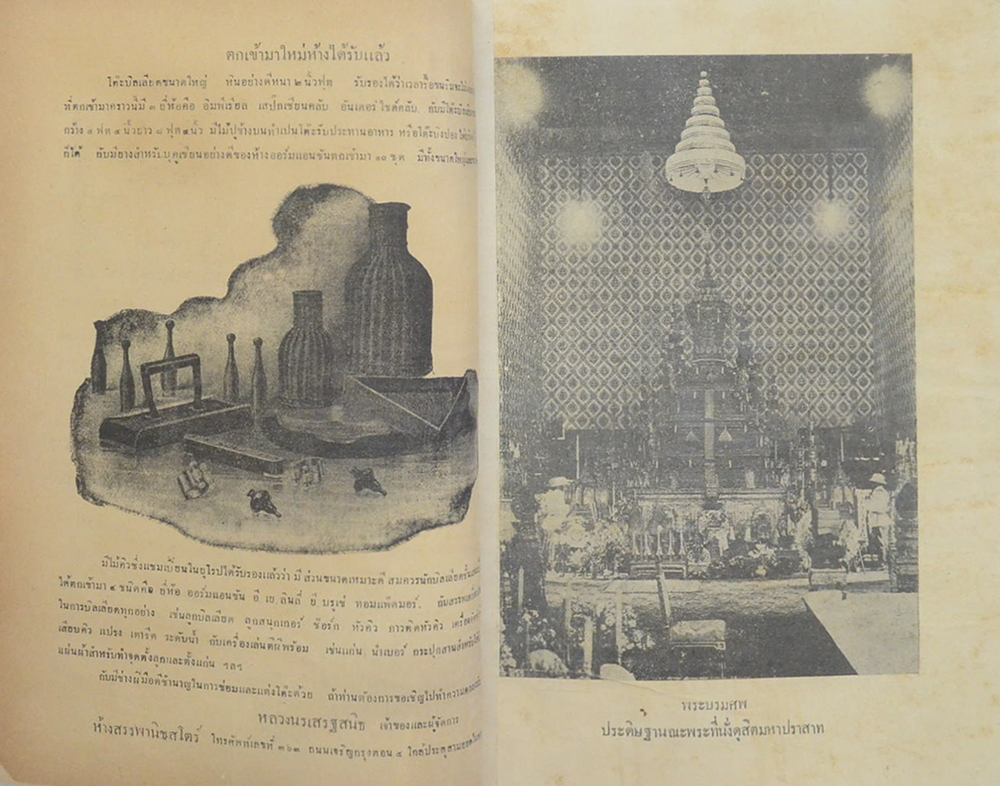 ตกเข้ามาใหม่ห้างได้รับแล้ว
โต๊ะบิลเลียดขนาดใหญ่ หินอย่างดีหนา ๒ นิ้วฟุต รับรองได้ว่าเวลารื้อขน
ที่ตกเข้ามาคราวนี้มี ๓ ยี่ห้อคือ อิมพีเรียล เสป๊กเซียนคลับ อันเดอร์ไซด์คลับ กับมีโต๊ะ
กว้าง ๔ ฟุต ๔ นิ้วยาว ๘ ฟุต ๔ นิ้ว มีไม้ปูข้างบนทำเปนโต๊ะรับประทานอาหาร หรือโต๊ะปิงปอง
ก็ได้ กับมียางสำหรับบุคูเชียนอย่างดีของห้างออร์มแอนซันตกเข้ามา ๑๓ ชุด มีทั้งขนาดใหญ่
มีไม้คิวซึ่งแชมเปี้ยนในยุโรปได้รับรองแล้วว่า มีส่วนขนาดเหมาะดี สมควรนักบิลเลียด
ได้ตกเข้ามา ๔ ชนิดคือ ยี่ห้อ ออร์มแอนซัน อี.เย.ลินลี่ ยี.บรูเช่ ทอมแพ็ดมอร์.
ในการบิลเลียดทุกอย่าง เช่นลูกบิลเลียด ลูกสนุกเกอร์ ช๊อร์ก หัวคิว กาวติดหัวคิว
เสียบคิว แปรง เตารีด ระดับน้ำ กับเครื่องเล่นตีผีพร้อม เช่นแก่น นำเบอร์ กระปุกสานสำหรับ
แผ่นผ้าสำหรับทำจุดตั้งลูกและตั้งแก่น ฯลฯ
กับมีช่างฝีมือดีชำนาญในการซ่อมและแต่งโต๊ะด้วย ถ้าท่านต้องการขอเชิญไปทำความตกลง
หลวงนรเสรฐสนิธ เจ้าของและผู้จัดการ
ห้างสรรพานิชสโตร์ โทรศัพท์เลขที่ ๓๖๓ ถนนเจริญกรุงตอน ๔ ใกล้ประตูสามยอด
พระบรมศพ
ประดิษฐานณะพระที่นั่งดุสิตมหาปราสาท